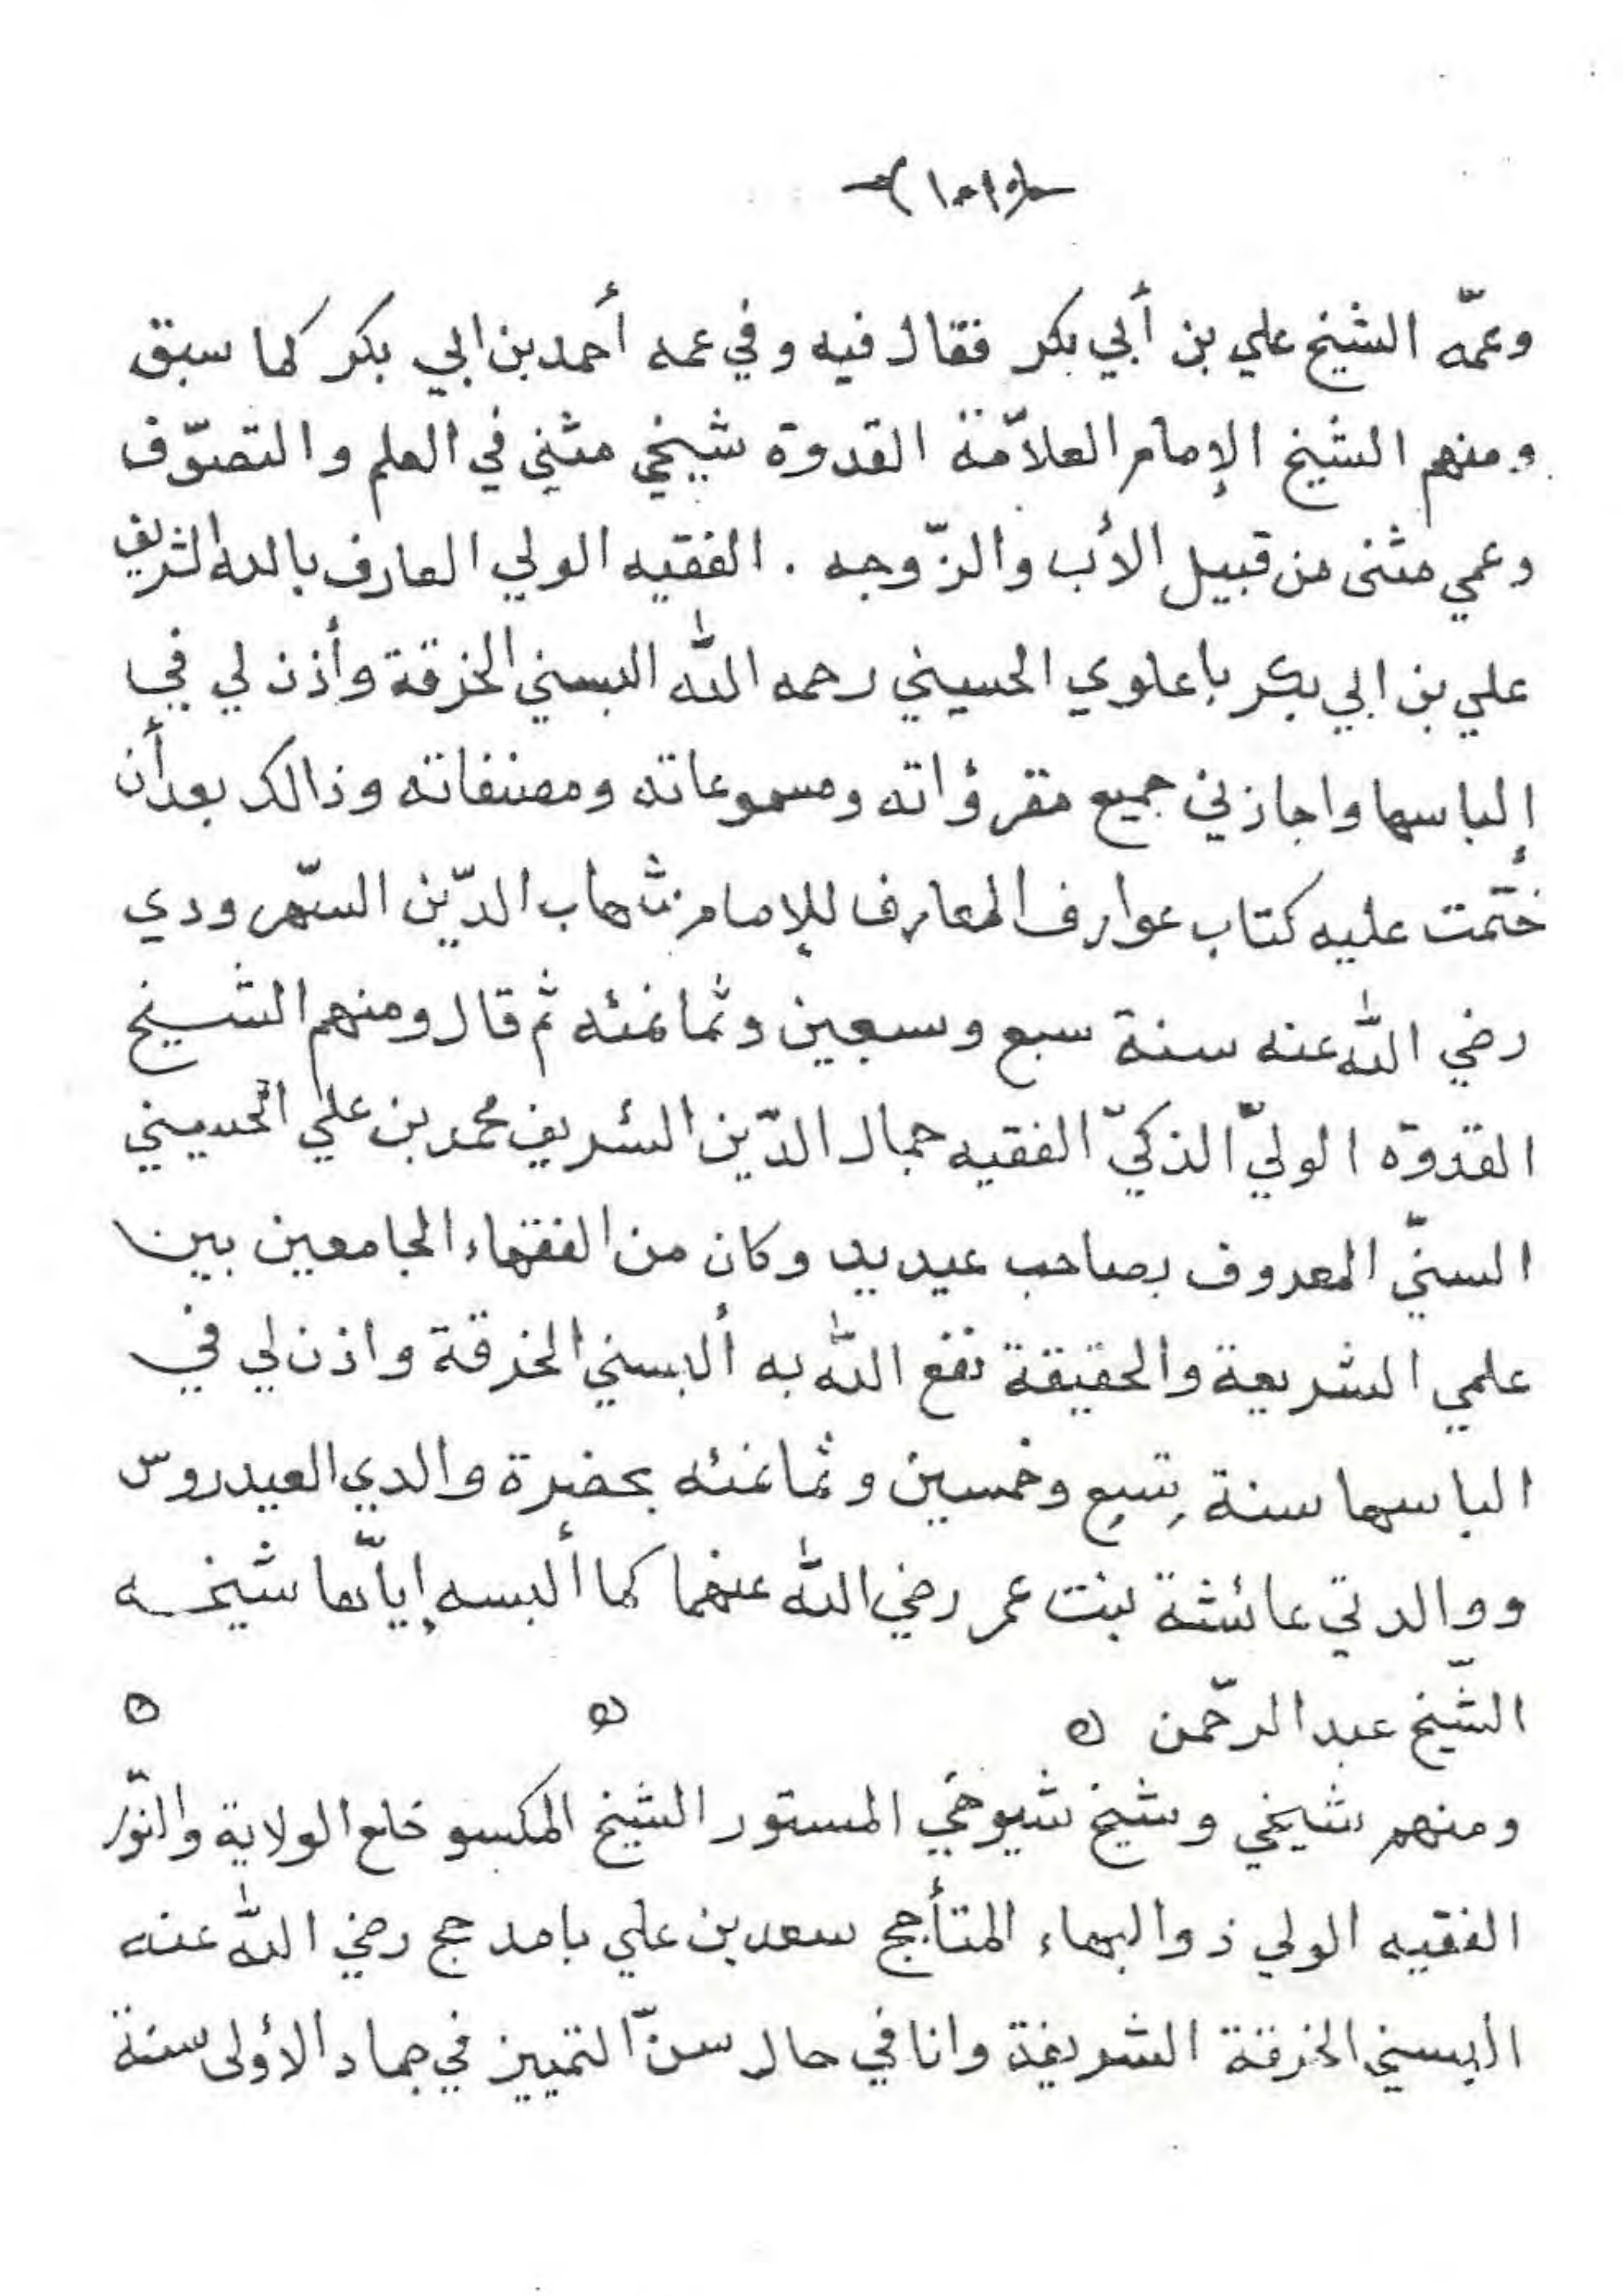 وعمّه الشيخ علي بن أبي بكر فقال فيه وفي عمه أحمد بن ابي بكر كما سبق
ومنهم الشيخ الإمام العلاّمة القدوة شيخي مثنى في العلم والتصوّف
وعمي مثنى من قبيل الأب والزّوجه . الفقيه الولي العارف بالله الشريف
علي بن ابي بكر باعلوي الحسيني رحمه الله البسني الخرقة وأذن لي في
إلباسها واجازني جميع مقرؤاته ومسموعاته ومصنفاته وذالك بعد أن
ختّمت عليه كتاب عوارف المعارف للإمام شهاب الدّين السّهرودي
رضي الله عنه سنة سبع وسبعين وثمانمئه ثم قال ومنهم الشيخ
القدوّه الوليّ الذكيّ الفقيه جمال الدّين الشريف محمد بن علي الحسيني
السنيّ المعروف بصاحب عيديد وكان من الفقهاء الجامعين بين
علمي الشريعة والحقيقة نفع الله به ألبسني الخرقة واذن لي في
الباسها سنة تسع وخمسين وثمانمئه بحضرة والدي العيدروس
ووالدتي عائشة بنت عمر رضي الله عنهما كما ألبسه إياّها شيخه
الشّيخ عبد الرّحمن ه ه ه
ومنهم شيخي وشيخ شيوخي المستور الشيخ المكسو خلع الولاية والنّور
الفقيه الولي ذو البهاء المتأجج سعد بن علي بامدحج رضي الله عنه
البسني الخرقة الشريفة وانا في حال سنّ التمييز في جماد الأولى سنة